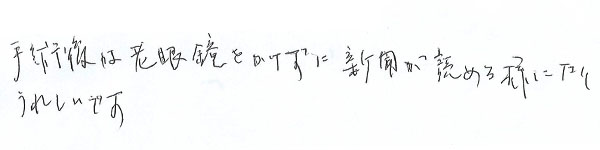 手術後は老眼鏡をかけずに新聞が読める様になり
うれしいです